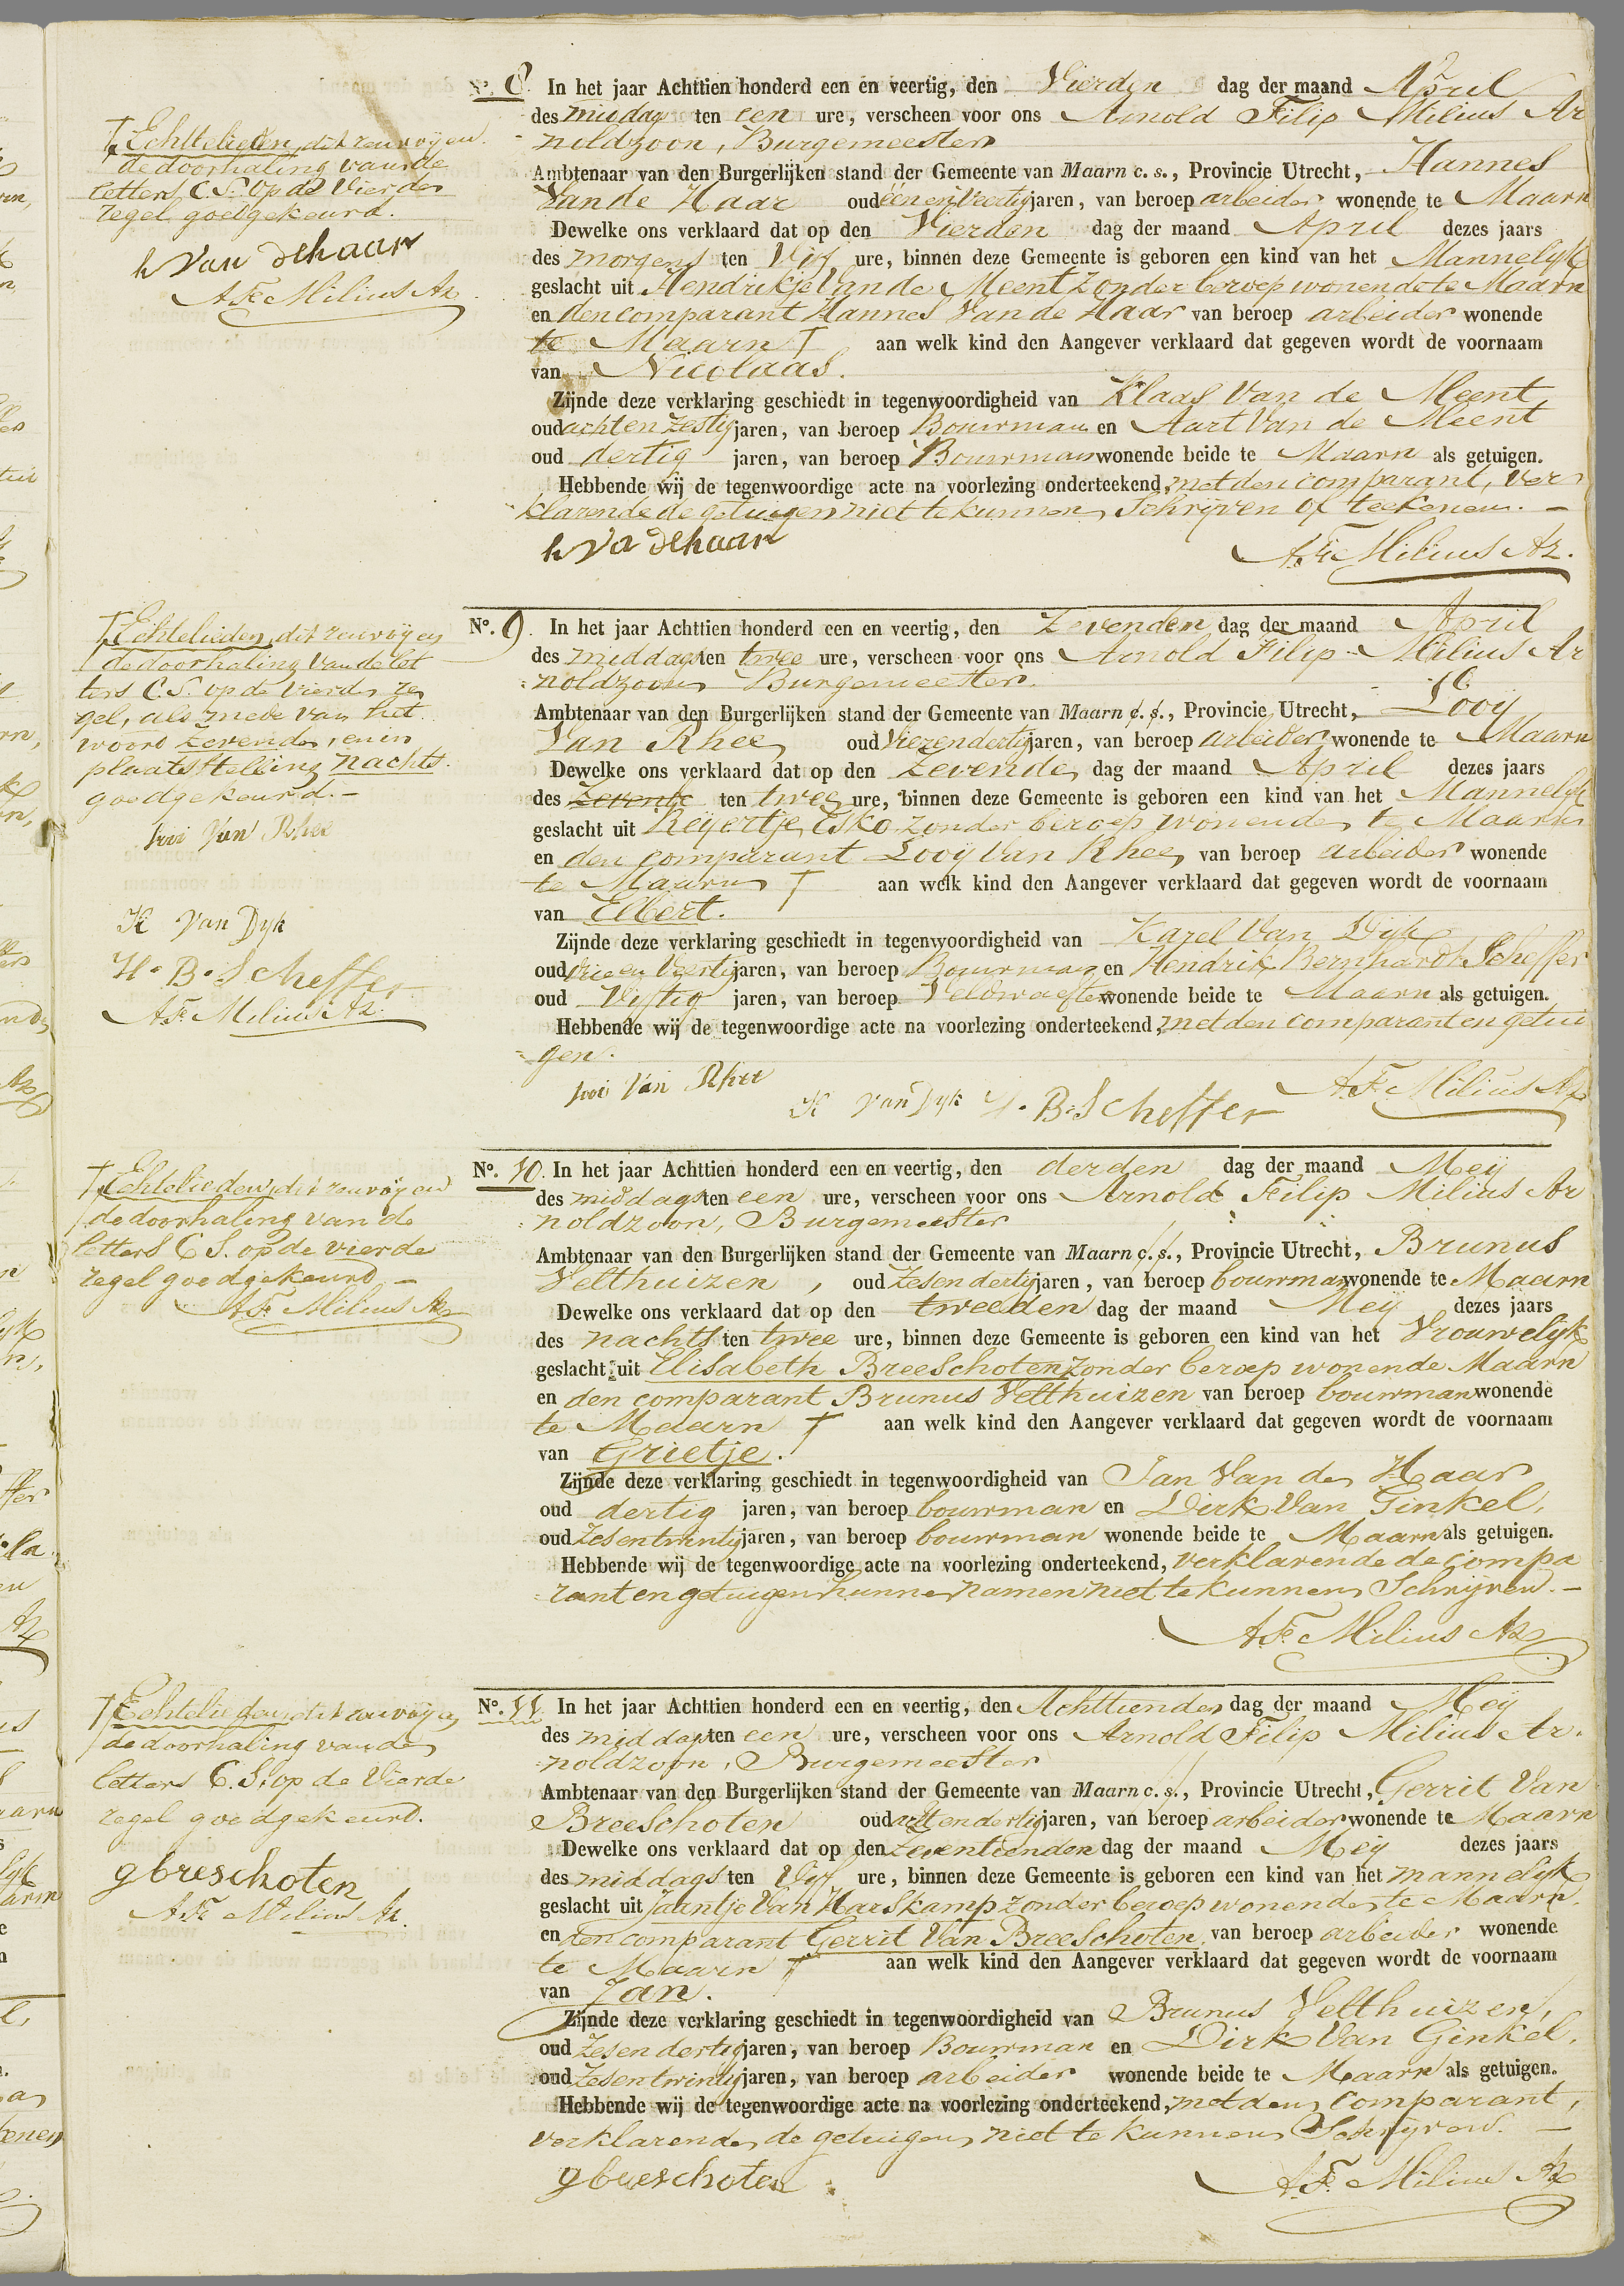 No. 8. In het jaar Achttien honderd een en veertig, den Vierden dag der maand April
des middags ten een ure, verscheen voor ons Arnold Filip Milius Ar
noldzoon, Burgemeester
Ambtenaar van den Burgerlijken stand der Gemeente van Maarn c. s., Provincie Utrecht, Hannes
Van de Haar oud een en Veertig jaren, van beroep arbeider wonende te Maarn
Dewelke ons verklaard dat op den Vierden dag der maand April dezes jaars
des morgens ten Vijf ure, binnen deze Gemeente is geboren een kind van het Mannelijk
geslacht uit Hendrikje Van de Meent zonder beroep wonende te Maarn
en den comparant Hannes Van de Haar van beroep arbeider wonende
te Maarn † aan welk kind den Aangever verklaard dat gegeven wordt de voornaam
van Nicolaas.
Zijnde deze verklaring geschiedt in tegenwoordigheid van Klaas Van de Meent
oud acht en zestig jaren, van beroep Bouwman en Aart Van de Meent
oud dertig jaren, van beroep Bouwman wonende beide te Maarn als getuigen.
Hebbende wij de tegenwoordige acte na voorlezing onderteekend, met den comparant, ver
klarende de getuigen niet te kunnen Schrijven of teekenen. –
h Va dehaar
A. F. Milius Az.
† Echtelieden, dit renvoij en
de doorhaling van de
letters C. S. op de Vierde
regel goedgekeurd.
h Van dehaar
A. F. Milius Az.
No. 9. In het jaar Achttien honderd een en veertig, den Zevenden dag der maand April
des middags ten twee ure, verscheen voor ons Arnold Filip Milius Ar
noldzoon Burgemeester
Ambtenaar van den Burgerlijken stand der Gemeente van Maarn c. s., Provincie Utrecht, Looij
Van Rhee oud Vier en dertig jaren, van beroep arbeider wonende te Maarn
Dewelke ons verklaard dat op den Zevende dag der maand April dezes jaars
des Zevende ten twee ure, binnen deze Gemeente is geboren een kind van het Mannelijk
geslacht uit Reijertje Esko zonder beroep wonende te Maarn
en den comparant Looij Van Rhee van beroep arbeider wonende
te Maarn † aan welk kind den Aangever verklaard dat gegeven wordt de voornaam
van Elbert.
Zijnde deze verklaring geschiedt in tegenwoordigheid van Karel Van Dijk
oud drie en Veertig jaren, van beroep Bouwman en Hendrik Bernhardt Scheffer
oud Vijftig jaren, van beroep Veldwachter wonende beide te Maarn als getuigen.
Hebbende wij de tegenwoordige acte na voorlezing onderteekend, met den comparant en getui
gen.
looi Van Rhee
K van Dyk H. B. Scheffer A. F. Milius Az
† Echtelieden, dit renvoij en
de doorhaling van de let
ters C. S. op de Vierde re
gel, als mede van het
woord Zevende, en in
plaatsstelling nachts
goedgekeurd. –
looi Van Rhee
K van Dyk
H. B. Scheffer
A. F. Milius Az.
No. 10. In het jaar Achttien honderd een en veertig, den derden dag der maand Meij
des middags ten een ure, verscheen voor ons Arnold Filip Milius Ar
noldzoon, Burgemeester
Ambtenaar van den Burgerlijken stand der Gemeente van Maarn c. s., Provincie Utrecht, Brunus
Velthuizen, oud Zes en dertig jaren, van beroep bouwman wonende te Maarn
Dewelke ons verklaard dat op den tweeden dag der maand Meij dezes jaars
des nachts ten twee ure, binnen deze Gemeente is geboren een kind van het Vrouwelijk
geslacht uit Elisabeth BreeSchoten zonder beroep wonende Maarn
en den comparant Brunus Velthuizen van beroep bouwman wonende
te Maarn † aan welk kind den Aangever verklaard dat gegeven wordt de voornaam
van Grietje.
Zijnde deze verklaring geschiedt in tegenwoordigheid van Jan Van de Haar
oud dertig jaren, van beroep bouwman en Dirk Van Ginkel,
oud Zes en twintig jaren, van beroep bouwman wonende beide te Maarn als getuigen.
Hebbende wij de tegenwoordige acte na voorlezing onderteekend, verklarende de compa
rant en getuigen hunne namen niet te kunnen Schrijven. –
A. F. Milius Az
† Echtelieden, dit renvoij en
de doorhaling van de
letters C S. op de vierde
regel goedgekeurd, –
A. F. Milius Az
No. 11. In het jaar Achttien honderd een en veertig, den Achttienden dag der maand Meij
des middags ten een ure, verscheen voor ons Arnold Filip Milius Ar-
noldzoon, Burgemeester
Ambtenaar van den Burgerlijken stand der Gemeente van Maarn c. s., Provincie Utrecht, Gerrit Van
BreeSchoten oud acht en dertig jaren, van beroep arbeider wonende te Maarn
Dewelke ons verklaard dat op den Zeventienden dag der maand Meij dezes jaars
des middags ten Vijf ure, binnen deze Gemeente is geboren een kind van het mannelijk
geslacht uit Jaantje Van Harskamp zonder beroep wonende te Maarn.
en den comparant Gerrit Van BreeSchoten, van beroep arbeider wonende
te Maarn † aan welk kind den Aangever verklaard dat gegeven wordt de voornaam
van Jan.
Zijnde deze verklaring geschiedt in tegenwoordigheid van Brunus Velthuizen,
oud Zes en dertig jaren, van beroep Bouwman en Dirk Van Ginkel,
oud Zes en twintig jaren, van beroep arbeider wonende beide te Maarn als getuigen.
Hebbende wij de tegenwoordige acte na voorlezing onderteekend, met den comparant,
verklarende de getuigen niet te kunnen Schrijven. –
g breschoten
A. F. Milius Az
† Echtelieden, dit renvoij en
de doorhaling van de
letters C. S. op de Vierde
regel goedgekeurd.
g breschoten
A. F. Milius Az.